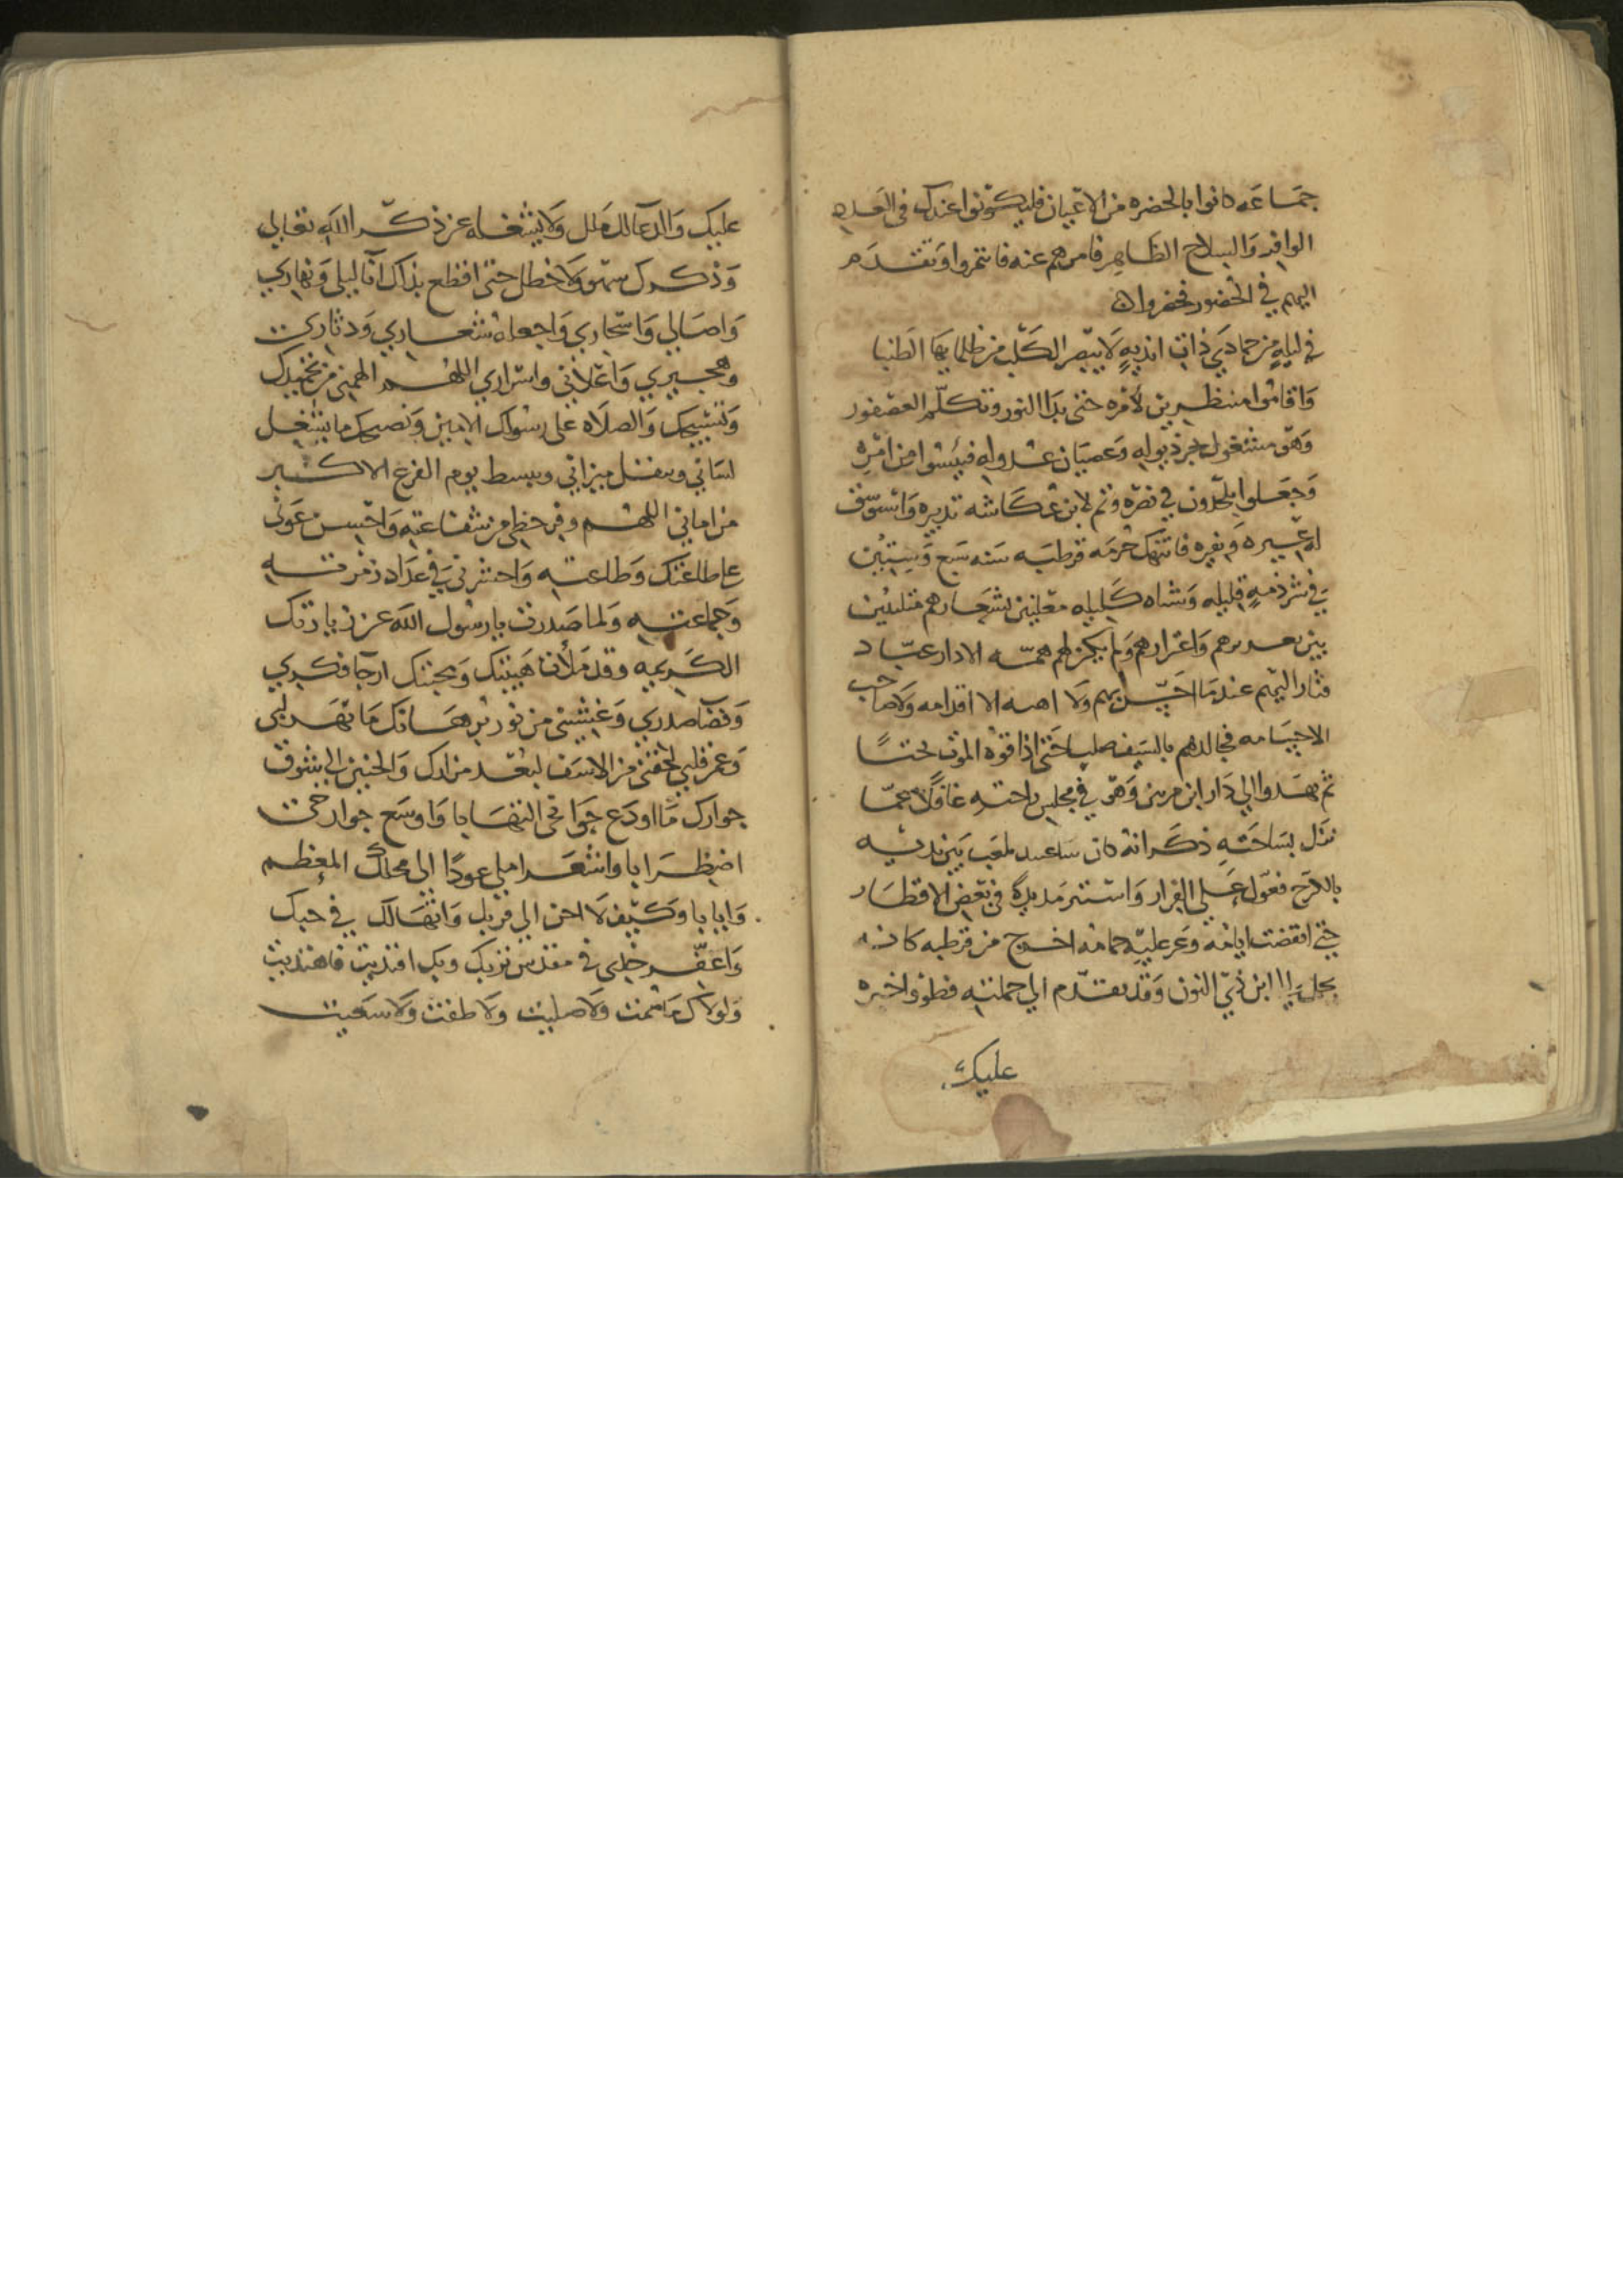 جمَاعَه كانوا بالحضره من الاعْيان فليكونوا عندك في العدد
الوافد وَالسلاح الظاهِر فامرهم عنه فاتمروا وَتقدَم
اليهم في الحضور فحضروا
في ليلةٍ من جمادَي ذات انديةٍ لَا يبصر الكَلب من ظلمايهَا الطنبا
وَاقامُوا منتظرين لامْره حتى بدَا النور وتكلّم العصْفور
وَهوَ مشغول بجر ذيوله وَعصيَان عذوله فيئسُوا من امْرِه
وَجعَلوا يلحدُون في نصْره وَتم لابن عُكاشه تدبيره وَاتسَوسَق
له عيره وَنفيره فانتهك حُرمَه قرطبَه سَنه سَبع وَسِتين
في شرذمةٍ قليله وَشباه كَليله معْلنين بشعَارهم متلبديْن
بين وَاعْرارهم وَلم يكن لهم همّه الا دار عبّاد
فثار اليهم عندمَا احَسّ بهم ولَا اقدامه وَلَا صَاحب
الا حسَامه فجالدهم بالسَيف صلبًا حَتى اذاقوْه الموْت بحتاً
ثم نهَدوا الي دَار ابن مرتين وَهوَ في مجلس راحته غافلاً عمّا
نَزل بسَاحَتهِ ذكَر انهُ كان سَاعتيد يلعَب بَين يديه
بالكرَج فعوّل عَلى الفِرار وَاستتر مدَيدةً في بعْض الاقطَار
حتي انقضت ايامُه وَعر عليْه حمامُه اخرج من قرطبه كانه
يحمل الي ابن ذي النون وَقد تقدّم الي حملته فطوْوا خبره
عليك
عليك وَالدعَا لك ملل وَلَا يشغله عن ذكر الله تعالي
وَذكرك سَهو وَلَا خطل حتى اقطع بذاك آنا ليلي وَنهاري
وَاصَالي وَاسْحَاري وَاجعله شعاري وَدثاري
وَهجيري وَاعْلاني واسْراري اللهم الهمني من تمجيدك
وَتسْبيحك وَالصلَاه على رسُولك الامين وَنصيحك ما يشغل
لسَاني ويثقل ميزاني ويبسط يوم الفزع الاكبر
من اماني اللهم وفر حظي من شفاعتهِ وَاحْسِن عَوني
علي طاعَتك وَطاعته وَاحشرني في عدَاد زمْرته
وَجماعتهِ وَلما صَدرت يا رسُول الله عن زيارتك
الكَريمه وقد مَلأت هَيبتك وَمحبتك ارجا فكري
وَفضَا صدري وَغشيني من نور بُرهَانك مَا بَهَر لبي
وَعمر قلبي لحقني من الاسَف لبعْد مزارك وَالحنين الي شوق
جوارك مَا اودَع جوَانحي التهَابا وَاوسَع جوارحي
اضطرَابا وَاشعَر املي عودًا الي محلك المعظم
وَايابا وَكيْف لَا احن الي قربك وَاتهَالك في حبك
وَاعفّر خدي في مقدس تربك وَبك اقتديت فاهتديت
وَلولَاك مَا صُمت وَلَا صليت وَلَا طفت وَلَا سَعيت